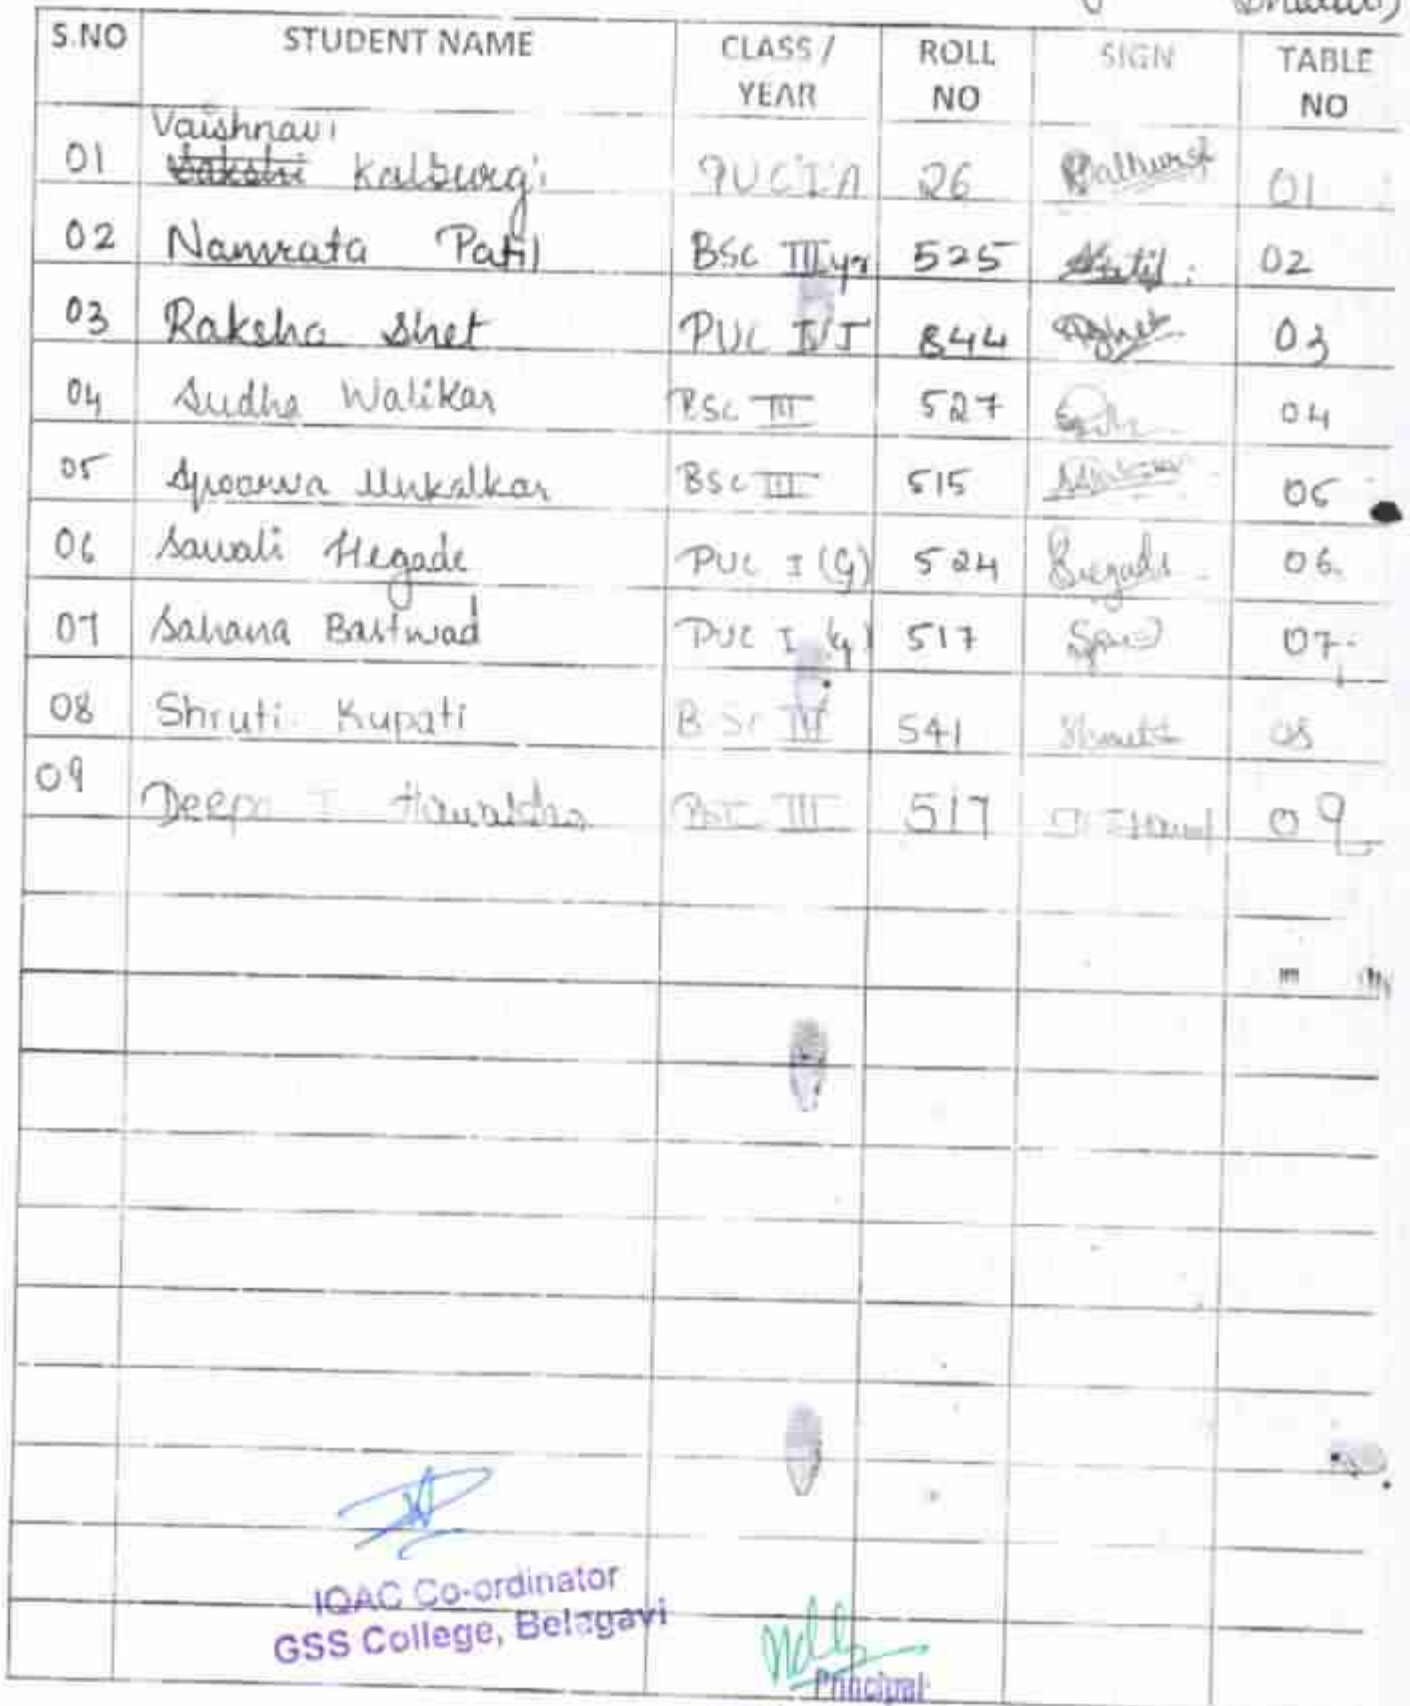 S.NO STUDENT NAME CLASS / YEAR ROLL NO SIGN TABLE NO
Vaishnavi
01 Kalburgi PUC I A 26 01
02 Namrata Patil BSc III yr 525 Patil 02
03 Raksha Shet PUC 844 Shet 03
04 Sudha Walikar BSc III 527 04
05 Apoorva Unkalkar BSc III 515 05
06 Sawali Hegade PUC I (G) 524 06
07 Sahana Bastwad PUC I (G) 517 07
08 Shruti Kupati BSc 541 Shruti 08
09 Deepa I III 517 09
IQAC Co-ordinator
GSS College, Belagavi
Principal